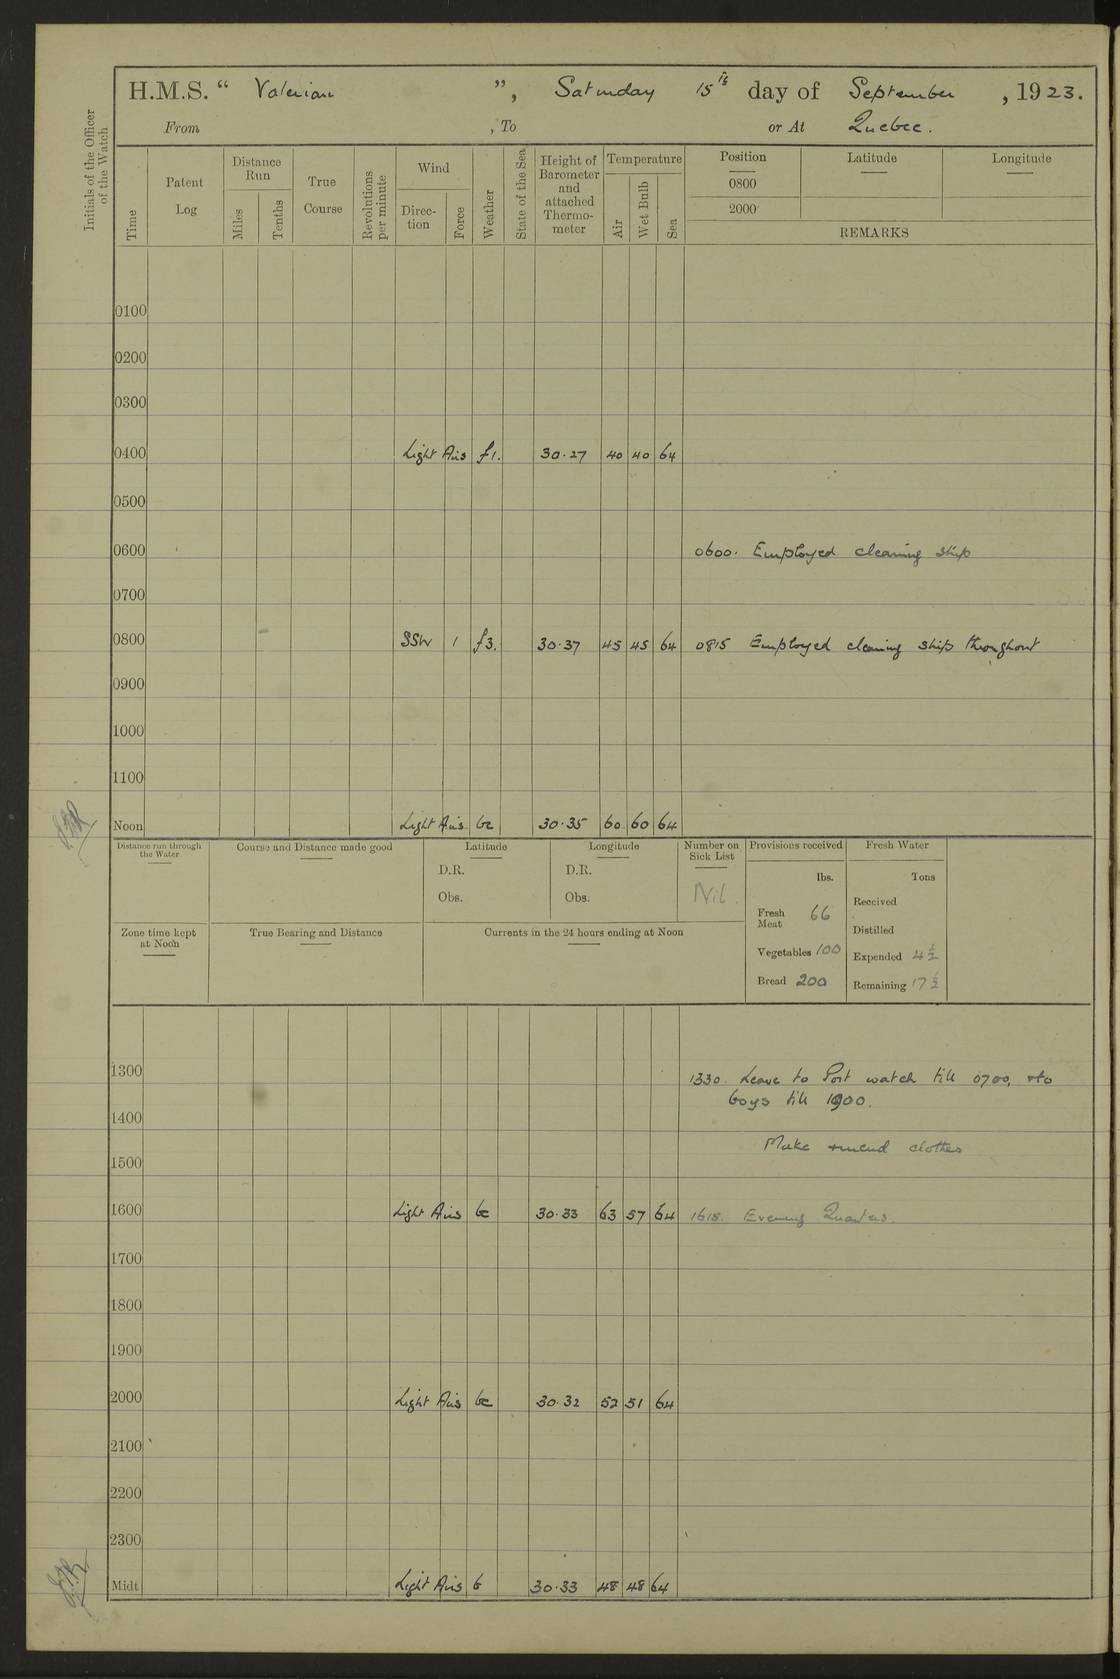 H.M.S. “ Valerian ”, Saturday 15th day of September , 1923.
From , To or At Quebec.
Initials of the Officer of the Watch
Time
Patent Log
Distance Run
Miles
Tenths
True Course
Revolutions per minute
Wind
Direction
Force
Weather
State of the Sea
Height of Barometer and attached Thermometer
Temperature
Air
Wet Bulb
Sea
Position Latitude Longitude
0800
2000
REMARKS
0100
0200
0300
0400 Light Airs f1. 30.27 40 40 64
0500
0600 0600. Employed cleaning ship
0700
0800 SSW 1 f3. 30.37 45 45 64 0815 Employed cleaning ship throughout
0900
1000
1100
Noon Light Airs bc 30.35 60 60 64
Distance run through the Water
Course and Distance made good
Latitude
D.R.
Obs.
Longitude
D.R.
Obs.
Number on Sick List
Nil.
Provisions received
lbs.
Fresh Meat 66
Vegetables 100
Bread 200
Fresh Water
Tons
Received
Distilled
Expended 4½
Remaining 17½
Zone time kept at Noon
True Bearing and Distance
Currents in the 24 hours ending at Noon
1300 1330. Leave to Port watch till 0700, + to
boys till 1900.
1400
Make + mend clothes
1500
1600 Light Airs bc 30.33 63 57 64 1615. Evening Quarters.
1700
1800
1900
2000 Light Airs bc 30.32 52 51 64
2100
2200
2300
Midt. Light Airs b 30.33 48 48 64